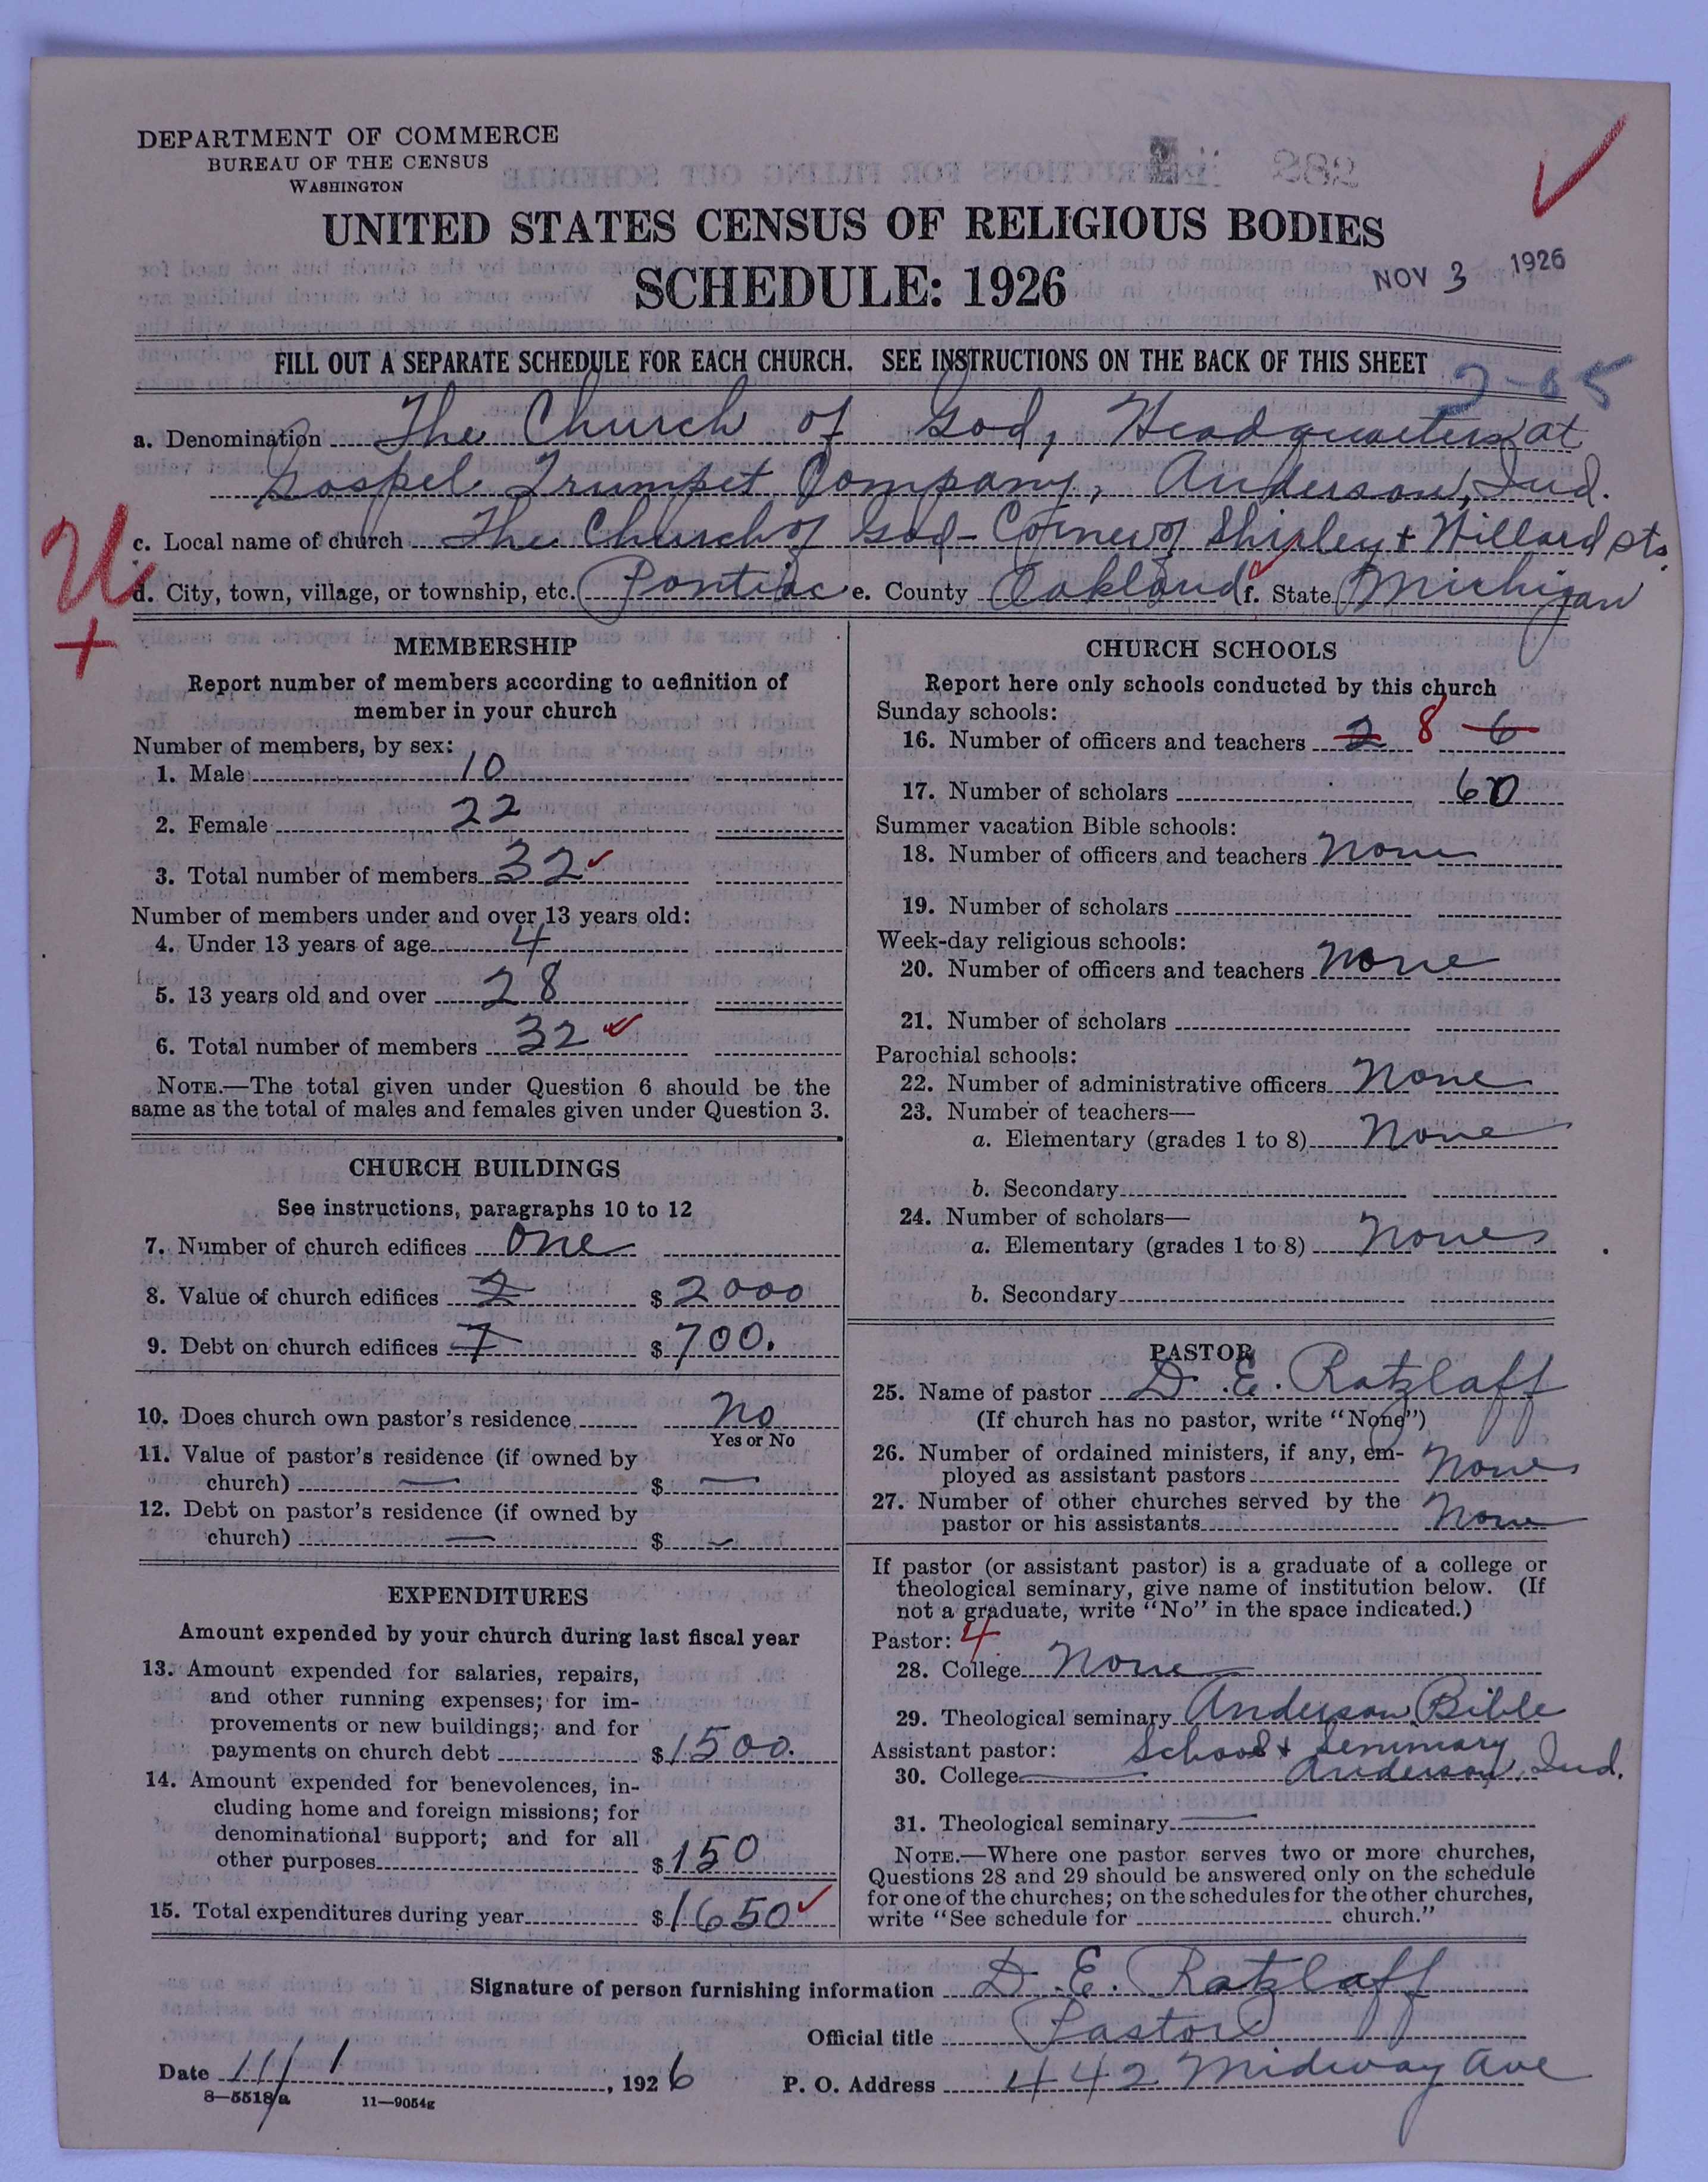 DEPARTMENT OF COMMERCE
BUREAU OF THE CENSUS
WASHINGTON
282
UNITED STATES CENSUS OF RELIGIOUS BODIES
SCHEDULE: 1926
NOV 3 1926
FILL OUT A SEPARATE SCHEDULE FOR EACH CHURCH. SEE INSTRUCTIONS ON THE BACK OF THIS SHEET
a. Denomination The Church of God, Headquarters at
Gospel Trumpet Company, Anderson, Ind.
c. Local name of church The Church of God - Corner of Shirley + Willard Sts.
d. City, town, village, or township, etc. Pontiac e. County Oakland f. State Michigan
MEMBERSHIP
Report number of members according to definition of
member in your church
Number of members, by sex:
1. Male 10
2. Female 22
3. Total number of members 32
Number of members under and over 13 years old:
4. Under 13 years of age 4
5. 13 years old and over 28
6. Total number of members 32
NOTE.—The total given under Question 6 should be the
same as the total of males and females given under Question 3.
CHURCH BUILDINGS
See instructions, paragraphs 10 to 12
7. Number of church edifices One
8. Value of church edifices 2 $ 2000
9. Debt on church edifices 7 $ 700.
10. Does church own pastor's residence No
Yes or No
11. Value of pastor's residence (if owned by
church) — $ —
12. Debt on pastor's residence (if owned by
church) — $ —
EXPENDITURES
Amount expended by your church during last fiscal year
13. Amount expended for salaries, repairs,
and other running expenses; for im-
provements or new buildings; and for
payments on church debt $ 1500.
14. Amount expended for benevolences, in-
cluding home and foreign missions; for
denominational support; and for all
other purposes $ 150
15. Total expenditures during year $ 1650
CHURCH SCHOOLS
Report here only schools conducted by this church
Sunday schools:
16. Number of officers and teachers 2 8 6
17. Number of scholars 60
Summer vacation Bible schools:
18. Number of officers and teachers None
19. Number of scholars
Week-day religious schools:
20. Number of officers and teachers None
21. Number of scholars
Parochial schools:
22. Number of administrative officers None
23. Number of teachers—
a. Elementary (grades 1 to 8) None
b. Secondary
24. Number of scholars—
a. Elementary (grades 1 to 8) None
b. Secondary
PASTOR
25. Name of pastor D. E. Ratzlaff
(If church has no pastor, write "None")
26. Number of ordained ministers, if any, em-
ployed as assistant pastors None
27. Number of other churches served by the
pastor or his assistants None
If pastor (or assistant pastor) is a graduate of a college or
theological seminary, give name of institution below. (If
not a graduate, write "No" in the space indicated.)
Pastor: 4
28. College None
29. Theological seminary Anderson Bible
School & Seminary
Assistant pastor:
30. College — Anderson, Ind.
31. Theological seminary —
NOTE.—Where one pastor serves two or more churches,
Questions 28 and 29 should be answered only on the schedule
for one of the churches; on the schedules for the other churches,
write "See schedule for church."
Signature of person furnishing information D. E. Ratzlaff
Official title Pastor
Date 11/1, 1926 P. O. Address 442 Midway Ave
8—5518a 11—9054g